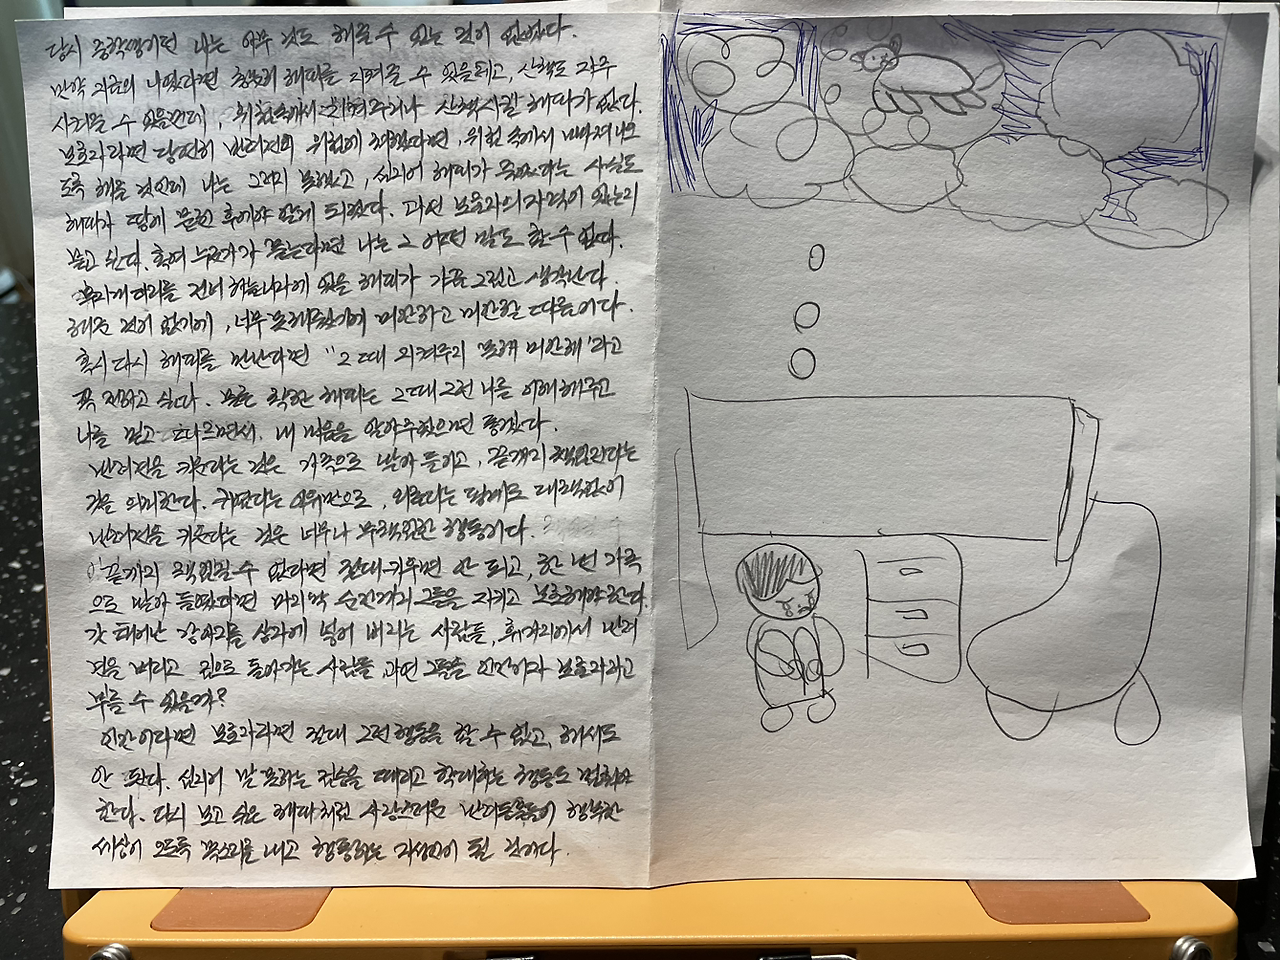 당시 중학생이던 나는 아무 것도 해줄 수 있는 것이 없었다.
만약 지금의 나였다면 충분히 해피를 지켜줄 수 있을테고, 산책도 자주
시켜줄 수 있을텐데, 위험속에서 지켜주거나 산책시킬 해피가 없다.
보호자라면 당연히 반려견이 위험에 처했다면, 위험 속에서 빠져나오
도록 해줄 것인데 나는 그러지 못했고, 심지어 해피가 죽었다는 사실도
해피가 땅에 묻힌 후에야 알게 되었다. 과연 보호자의 자격이 있는지
묻고 싶다. 혹여 누군가가 묻는다면 나는 그 어떤 말도 할 수 없다.
무지개다리를 건너 하늘나라에 있을 해피가 가끔 그립고 생각난다.
해준 것이 없기에, 너무 못해줬기에 미안하고 미안할 따름이다.
혹시 다시 해피를 만난다면 "그 때 지켜주지 못해 미안해"라고
꼭 전하고 싶다. 물론 착한 해피는 그때 그런 나를 이해해주고
나를 믿고 따르면서, 내 마음을 알아주었으면 좋겠다.
반려견을 키운다는 것은 가족으로 받아 들이고, 끝까지 책임진다는
것을 의미한다. 귀엽다는 이유만으로, 외롭다는 땜에도 대책없이
반려견을 키운다는 것은 너무나 무책임한 행동이다.
끝까지 책임질 수 없다면 절대 키우면 안 되고, 한 번 가족
으로 받아 들였다면 마지막 순간까지 그들을 지키고 보호해야 한다.
갓 태어난 강아지를 상자에 넣어 버리는 사람들, 휴게지에서 반려
견을 버리고 집으로 돌아가는 사람들, 과연 그들을 인간이자 보호자라고
부를 수 있을까?
인간이라면 보호자라면 절대 그런 행동을 할 수 없고, 해서도
안 된다. 심지어 말 못하는 짐승을 때리고 학대하는 행동도 멈춰야
한다. 다시 보고 싶은 해피처럼 사랑스러운 반려동물들이 행복한
세상이 오도록 목소리를 내고 행동하는 지성인이 될 것이다.